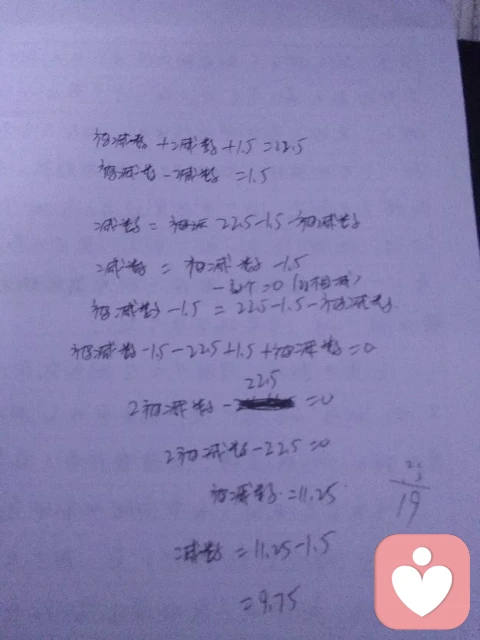 被减数+减数+1.5=22.5
被减数-减数=1.5
减数=被减 22.5-1.5-被减数
减数=被减数-1.5
=0(相减)
被减数-1.5=22.5-1.5-被减数
被减数-1.5-22.5+1.5+被减数=0
22.5
2被减数- =0
2被减数-22.5=0
被减数=11.25
19
减数=11.25-1.5
=9.75